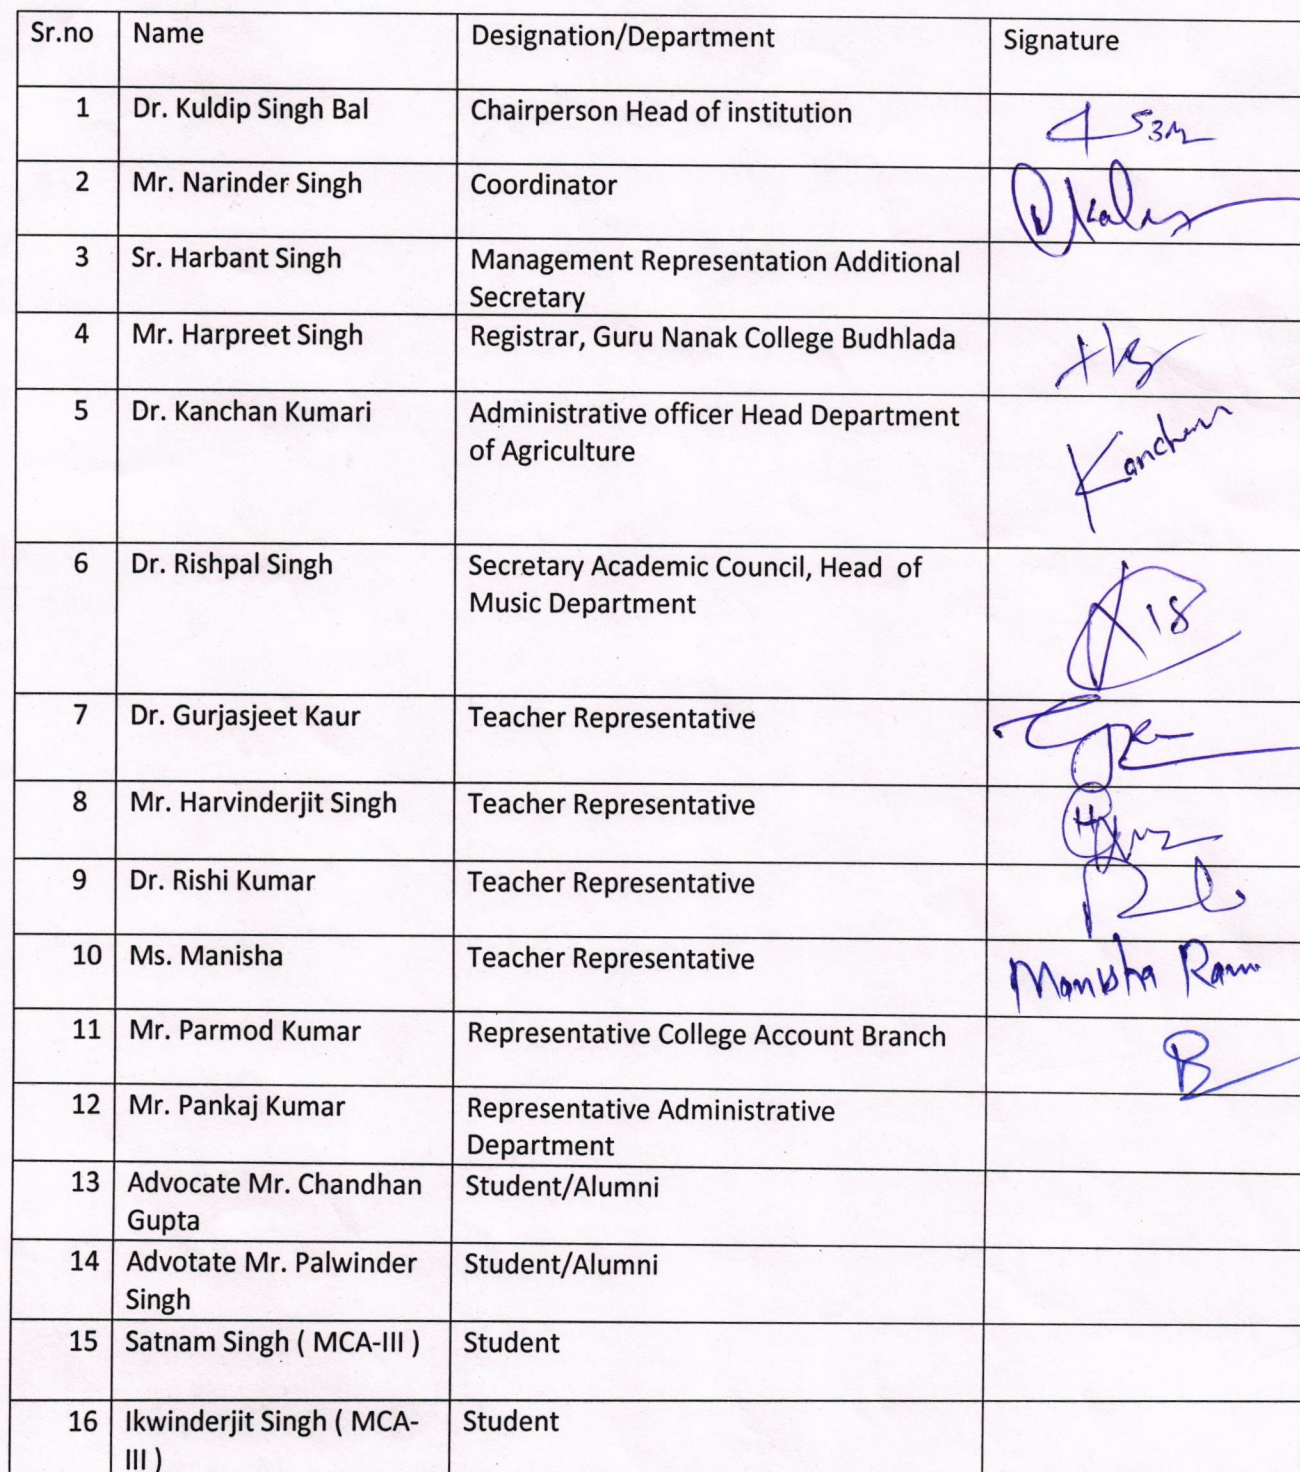 Sr.no Name Designation/Department Signature
1 Dr. Kuldip Singh Bal Chairperson Head of institution
2 Mr. Narinder Singh Coordinator
3 Sr. Harbant Singh Management Representation Additional
Secretary
4 Mr. Harpreet Singh Registrar, Guru Nanak College Budhlada
5 Dr. Kanchan Kumari Administrative officer Head Department
of Agriculture
Kanchan
6 Dr. Rishpal Singh Secretary Academic Council, Head of
Music Department
7 Dr. Gurjasjeet Kaur Teacher Representative
8 Mr. Harvinderjit Singh Teacher Representative
9 Dr. Rishi Kumar Teacher Representative
10 Ms. Manisha Teacher Representative Manisha
11 Mr. Parmod Kumar Representative College Account Branch
12 Mr. Pankaj Kumar Representative Administrative
Department
13 Advocate Mr. Chandhan Student/Alumni
Gupta
14 Advotate Mr. Palwinder Student/Alumni
Singh
15 Satnam Singh ( MCA-III ) Student
16 Ikwinderjit Singh ( MCA- Student
III )